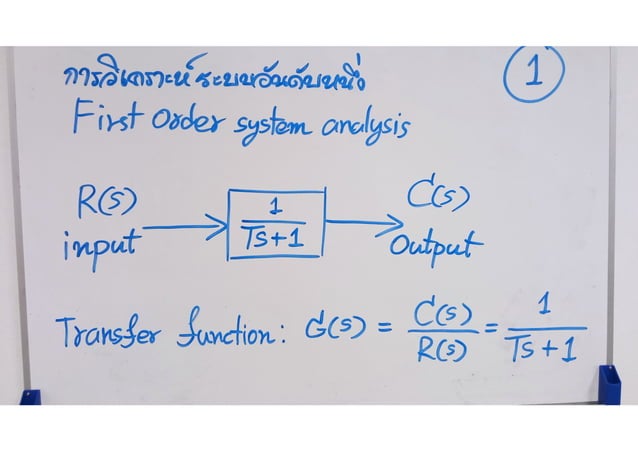 การวิเคราะห์ระบบอันดับหนึ่ง
1
First Order system analysis
R(s)
input
1
Ts+1
C(s)
Output
Transfer function: G(s) = C(s)/R(s) = 1/Ts+1